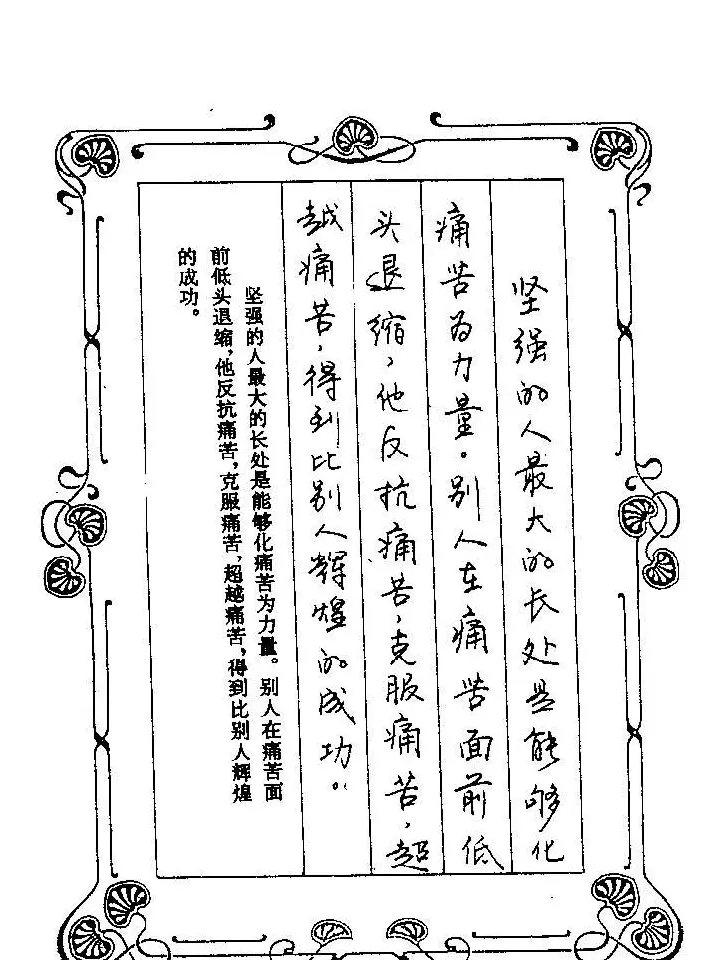 坚强的人最大的长处是能够化
痛苦为力量。别人在痛苦面前低
头退缩，他反抗痛苦，克服痛苦，超
越痛苦，得到比别人辉煌的成功。
坚强的人最大的长处是能够化痛苦为力量。别人在痛苦面
前低头退缩，他反抗痛苦，克服痛苦，超越痛苦，得到比别人辉煌
的成功。